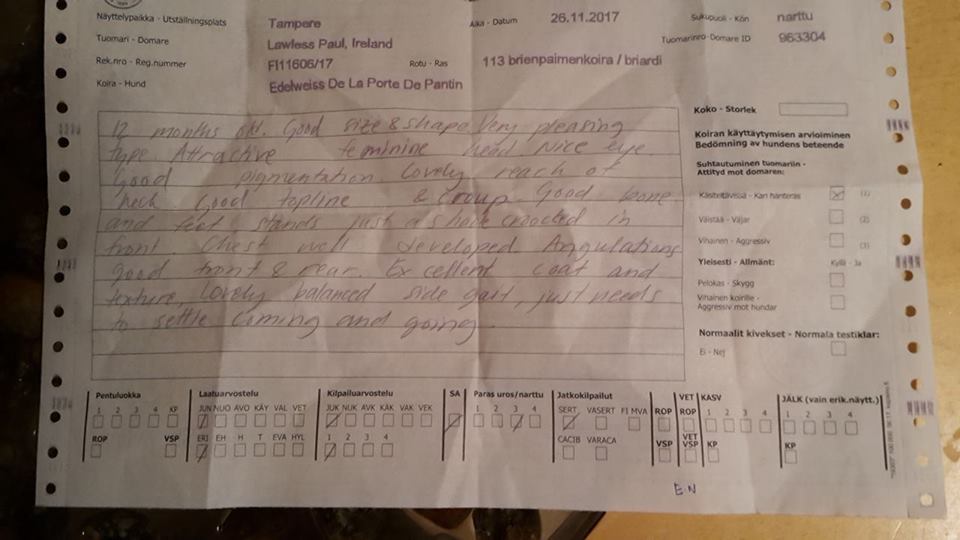 Näyttelypaikka - Utställningsplats Tampere Aika - Datum 26.11.2017 Sukupuoli - Kön narttu
Tuomari - Domare Lawless Paul, Ireland Tuomarinro-Domare ID 963304
Rek.nro - Reg.nummer FI11606/17 Rotu - Ras 113 brienpaimenkoira / briardi
Koira - Hund Edelweiss De La Porte De Pantin
12 months old. Good size & shape Very pleasing
type. Attractive feminine head Nice eye.
Good pigmentation. Lovely reach of
neck Good topline & croup. Good bone
and feet stands just a shade crooked in
front Chest well developed Angulations
good front & rear. Excellent coat and
texture, Lovely balanced side gait, just needs
to settle coming and going.
Koko - Storlek
Koiran käyttäytymisen arvioiminen
Bedömning av hundens beteende
Suhtautuminen tuomariin -
Attityd mot domaren:
Käsiteltävissä - Kan hanteras (1)
Väistää - Väjar (2)
Vihainen - Aggressiv (3)
Yleisesti - Allmänt: Kyllä - Ja
Pelokas - Skygg
Vihainen koirille -
Aggressiv mot hundar
Normaalit kivekset - Normala testiklar:
Ei - Nej
Pentuluokka Laatuarvostelu Kilpailuarvostelu SA Paras uros/narttu Jatkokilpailut VET KASV JÄLK (vain erik.näytt.)
1 2 3 4 KP JUN NUO AVO KÄY VAL VET JUK NUK AVK KÄK VAK VEK 1 2 3 4 SERT VASERT FI MVA ROP ROP 1 2 3 4 1 2 3 4
ROP VSP ERI EH H T EVA HYL 1 2 3 4 CACIB VARACA VSP VET VSP KP KP
E.N